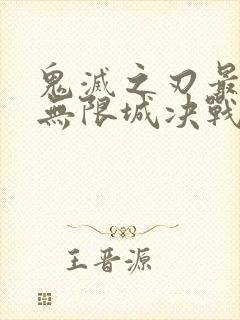 鬼滅之刃最
無限城決戰
王晋源